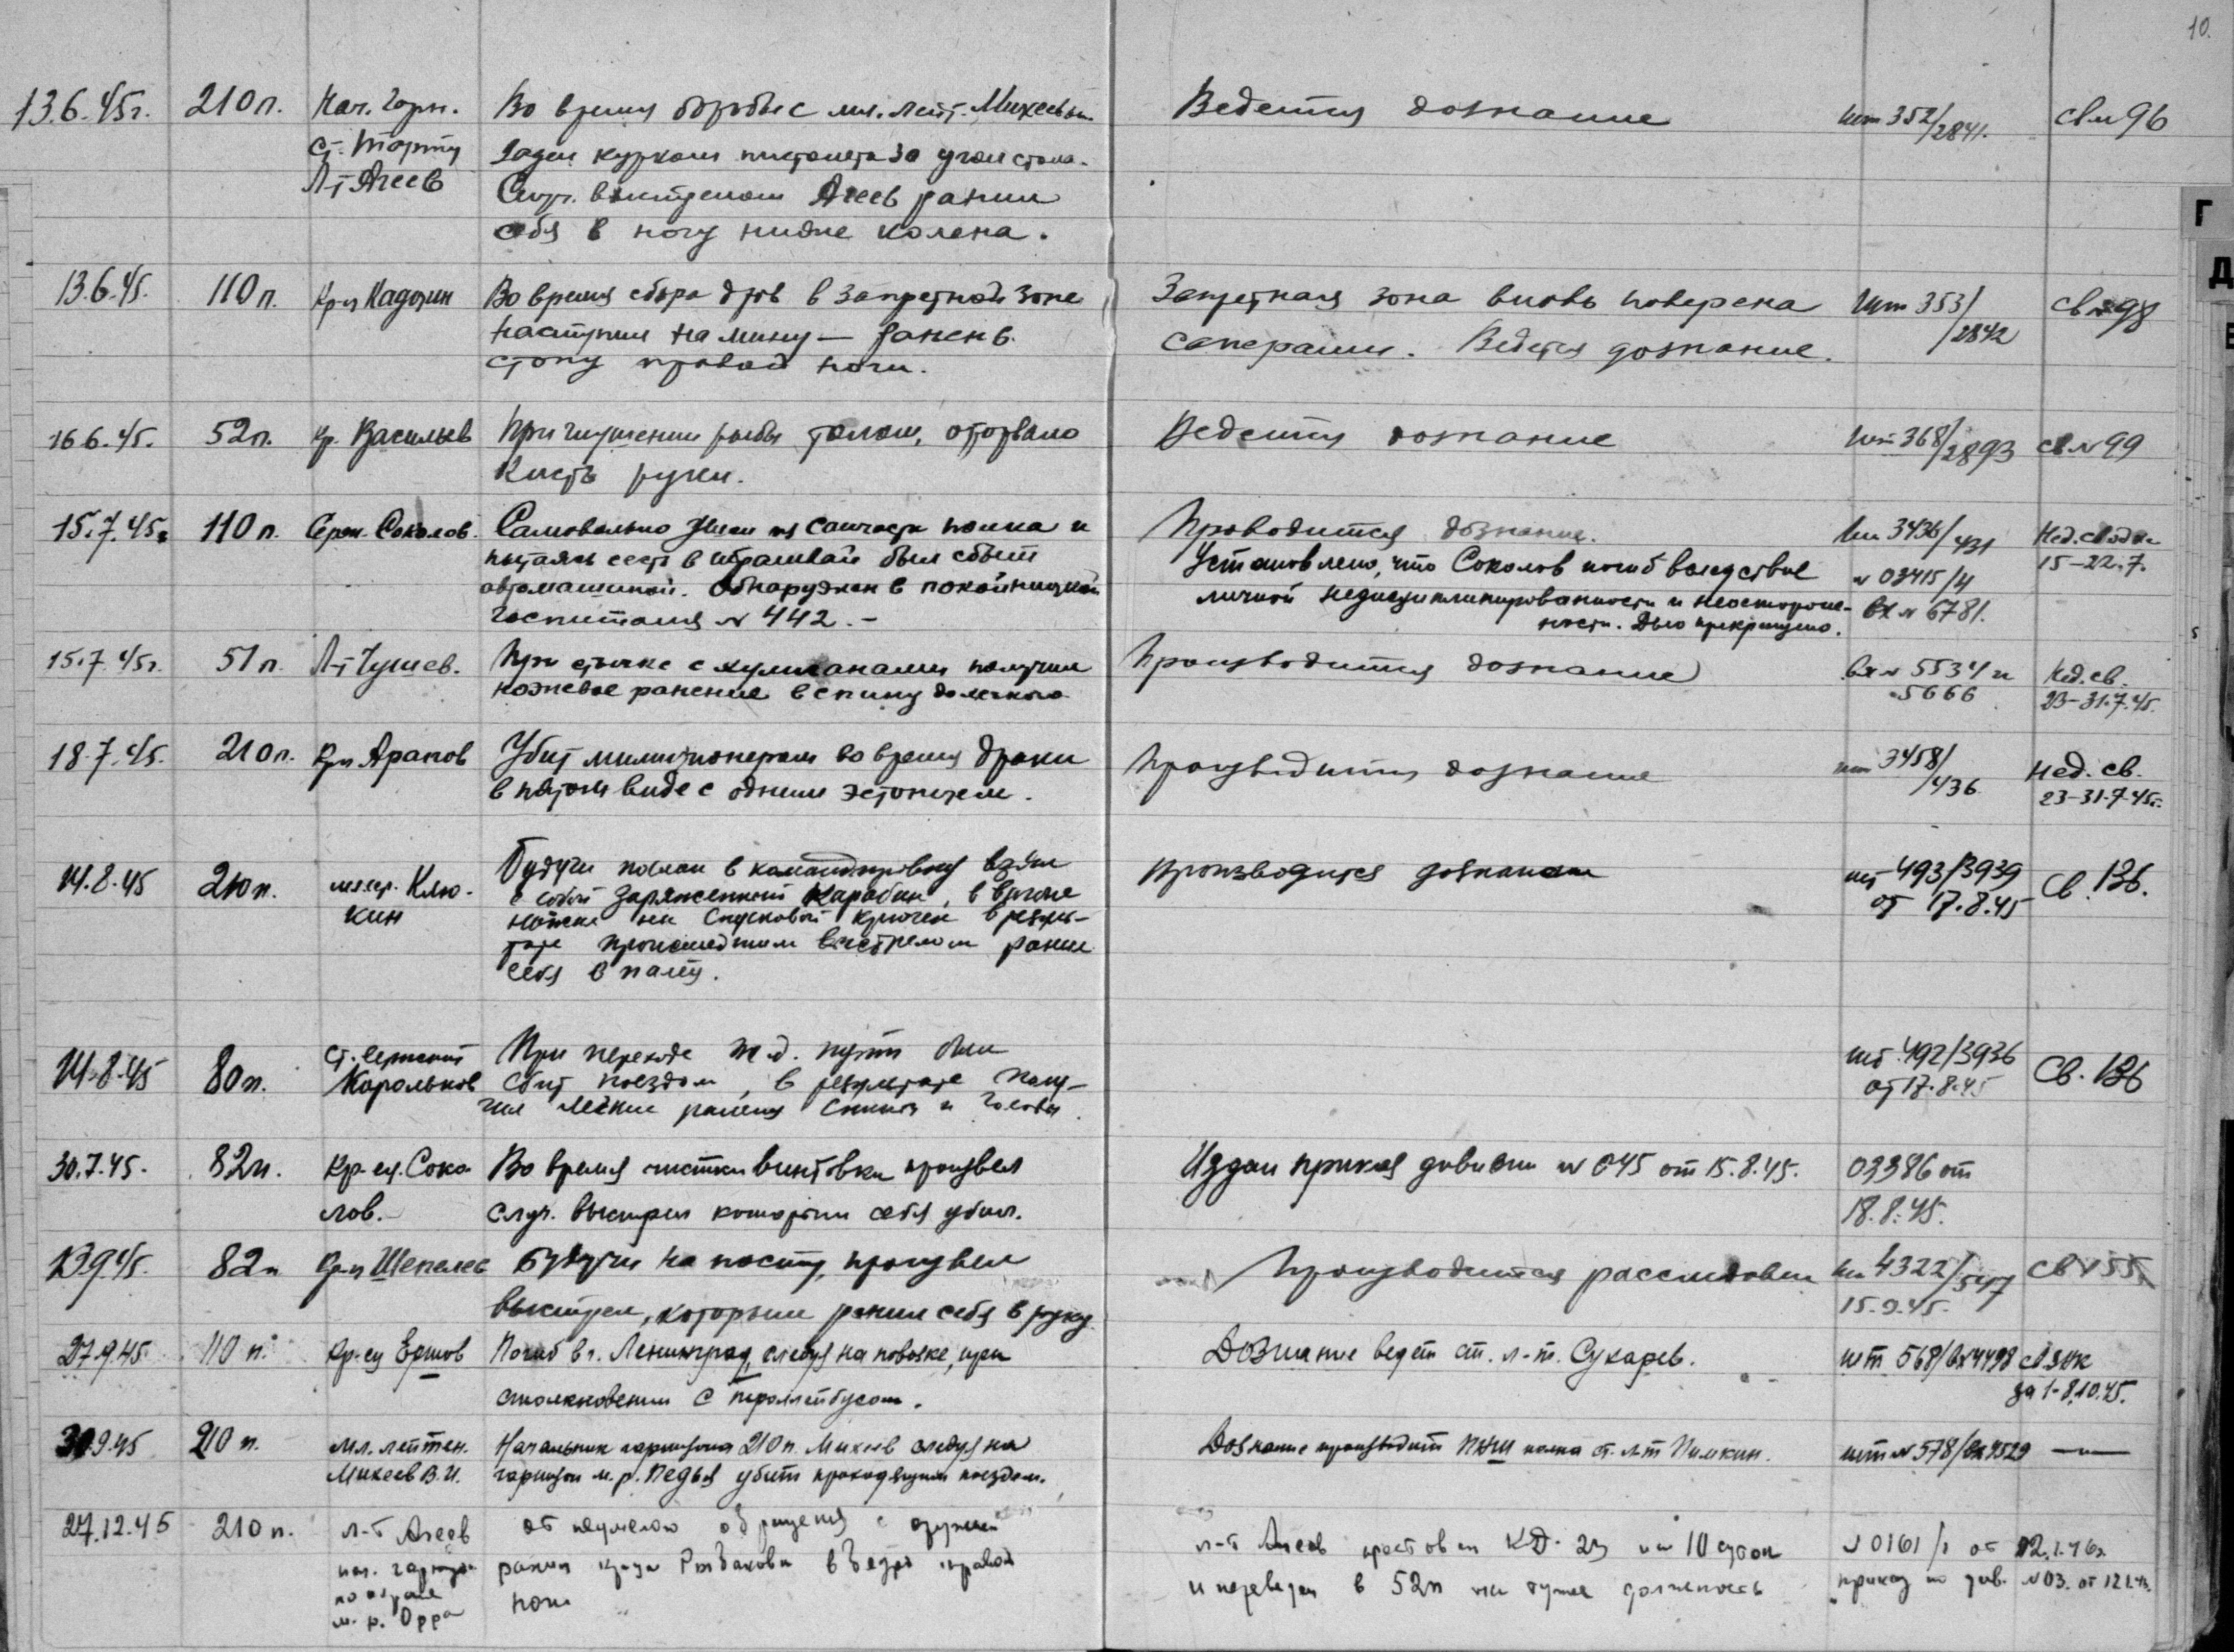 10.
13.6.45г. 210 п. Нач. Гарн. Во время борьбы с мл. лейт. Михеевым Ведется дознание шт 352/2841. св № 96
ст. Тарту задел курком пистолета за угол стола.
Л-т Агеев Случ. выстрелом Агеев ранил
себя в ногу ниже колена.
13.6.45. 110 п. Кр-ц Во время сбора дров в запретной зоне Запретная зона вновь поверена шт 353/2842 св № 98
наступил на мину — ранен в саперами. Ведется дознание.
стопу правой ноги.
16 6.45. 52 п. кр. Васильев При глушении рыбы толом, оторвало Ведется дознание шт 368/2893 св № 99
кисть руки.
15.7.45г 110 п. Серж. Соколов. Самовольно ушел из санчасти полка и Проводится дознание. 3436/431 Нед. сводка
пытаясь сесть в трамвай был сбит Установлено, что Соколов погиб вследствие № 03415/4 15-22.7.
автомашиной. Обнаружен в покойницкой личной недисциплинированности и неосторож- вх № 6781.
госпиталя № 442. — ности. Дело прекращено.
15.7.45г. 51 п. Л-т Чушев. При стычке с хулиганами получил Производится дознание вх № 5534 и Нед. св.
ножевое ранение в спину до легкого 5666 23-31.7.45.
18.7.45. 210 п. Кр-ц Арапов Убит милиционером во время драки Производится дознание шт 3458/436 Нед. св.
в пьяном виде с одним эстонцем. 23-31.7.45г.
14.8.45 210 п. мл. сер. Клю- Будучи послан в командировку взял производится дознание шт 493/3939 Св. 136.
кин с собой заряженный карабин, в вагоне от 17.8.45
нажал на спусковой крючок в резуль-
тате происшедшим выстрелом ранил
себя в палец.
14.8.45 80 п. ст. сержант При переходе ж.д. пути был шт. 492/3936 Св. 136
Корольков сбит поездом, в результате полу- от 17.8.45
чил легкие ранения спины и головы.
30.7.45. 82 п. Кр-ец. Соко- Во время чистки винтовки произвел Издан приказ дивизии № 045 от 15.8.45. 03386 от
лов. — случ. выстрел которым себя убил. 18.8.45.
13.9.45. 82 п Кр-ц Шепелев Будучи на посту, произвел Производится расследован 4322/547 св № 155
выстрел, которым ранил себя в руку. 15.9.45.
27.9.45 110 п. Кр-ец Ершов Погиб в г. Ленинград, следуя на повозке, при Дознание ведет ст. л-т. Сухарев. шт 568/вх4498
столкновении с троллейбусом. за 1-8.10.45.
30.9.45 210 п. мл. лейтен. Начальник гарнизона 210 п. Михеев следуя на Дознание производит ПНШ полка ст. л-т Пимкин. шт № 578/вх4529 —〃—
Михеев В. И. гарнизон м. р. Педья убит проходящим поездом.
27.12.45 210 п. л-т Агеев от неумелого обращения с оружием л-т Агеев арестован КД. 23 на 10 суток № 0161/1 от 12.1.46г.
нач. гарнизон ранил кр-ца Рыбакова в бедро правой и переведен в 52 п на туже должность приказ по див. № 03. от 12.1.46.
по охране ноги
м. р. Орра
Г
Д